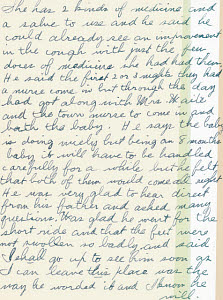 She has 2 kinds of medicine and
a salve to use and he said he
could already see an improvement
in the cough with just the few
doses of medicine she had had then.
He said the first 2 or 3 nights they had
a nurse come in but through the day
had got along with Mrs.
and the town nurse to come in and
bath the baby. He says the baby
is doing nicely but being an 8 months
baby it will have to be handled
carefully for a while but he felt
that both of them would come all right
He was very glad to hear direct
from his father and asked many
questions. Was glad he went for the
short ride and that the feet were
not swollen so badly and said
I shall go up to see him soon as
I can leave this place was the
way he worded it and I know he
will.